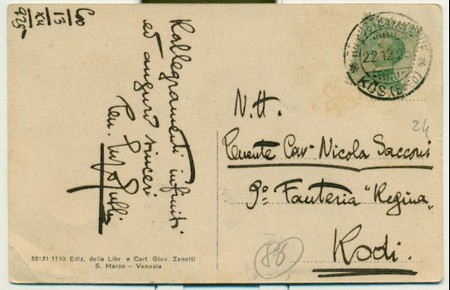 Coo
13
XII
925
Rallegramenti infiniti
ed auguri sinceri
Ten.
22.12
KOS (EGEO)
24
N.H.
Tenente Cav. Nicola Sacconi
9º Fanteria "Regina"
Rodi.
88
50131 1110 Ediz. della Libr. e Cart. Giov. Zanetti
S. Marco - Venezia